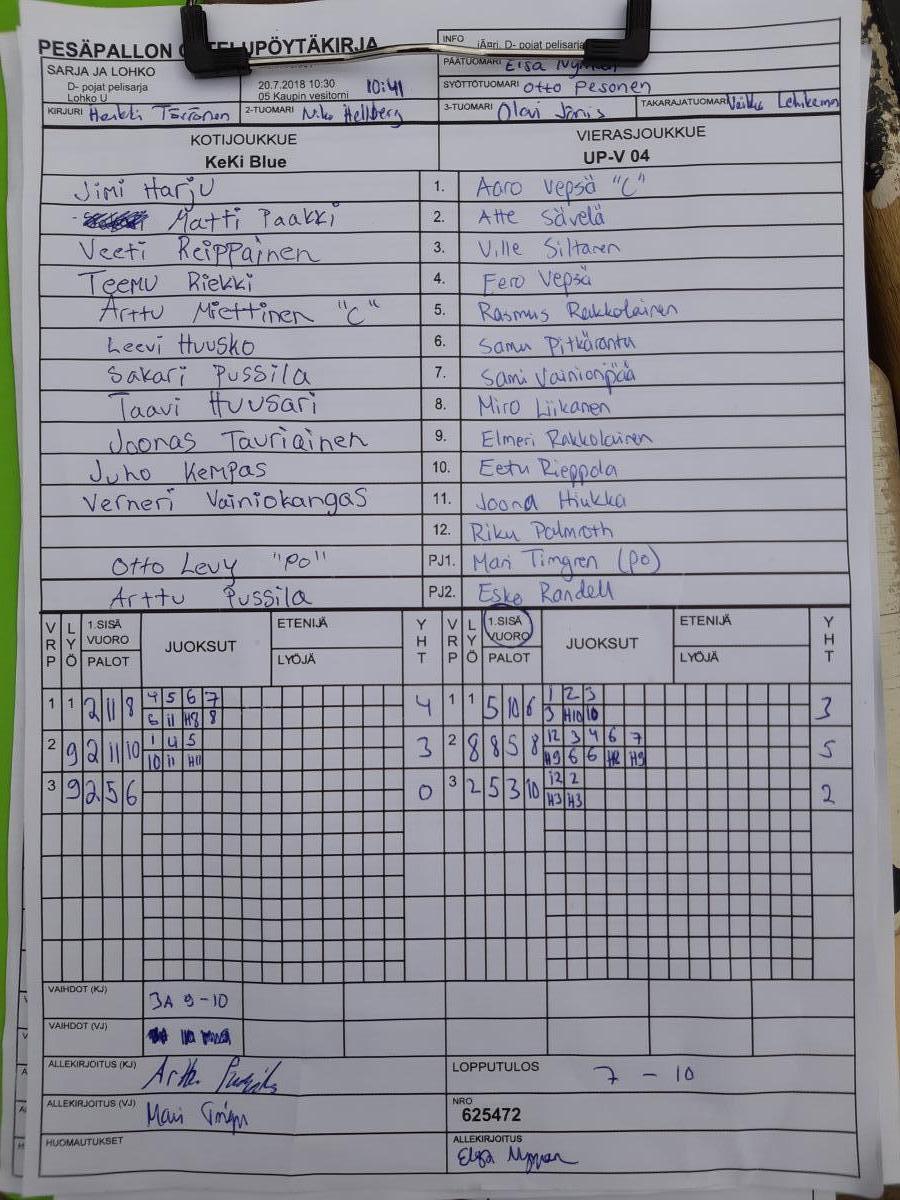 PESÄPALLON OTTELUPÖYTÄKIRJA
INFO
iÄnri. D- pojat pelisarja
SARJA JA LOHKO
D- pojat pelisarja
Lohko U
20.7.2018 10:30 10:41
05 Kaupin vesitorni
PÄÄTUOMARI Elsa
SYÖTTÖTUOMARI Otto Pesonen
KIRJURI Heikki Törrönen 2-TUOMARI Niko Hellberg 3-TUOMARI Olavi TAKARAJATUOMARI Veikko
KOTIJOUKKUE VIERASJOUKKUE
KeKi Blue UP-V 04
Jimi Harju 1. Aaro Vepsä "C"
Matti Paakki 2. Atte Sävelä
Veeti Reippainen 3. Ville Siltanen
Teemu Riekki 4. Eero Vepsä
Arttu Miettinen "C" 5. Rasmus Rakkolainen
Leevi Huusko 6. Samu Pitkäranta
Sakari Pussila 7. Sami Vainionpää
Taavi Huusari 8. Miro Liikanen
Joonas Tauriainen 9. Elmeri Rakkolainen
Juho Kempas 10. Eetu Rieppola
Verneri Vainiokangas 11. Joona Hiukka
12. Riku Palmroth
Otto Levy "PO" PJ1. Mari Timgren (po)
Arttu Pussila PJ2. Esko Randell
VRP LYÖ 1.SISÄ VUORO PALOT JUOKSUT ETENIJÄ LYÖJÄ YHT VRP LYÖ 1.SISÄ VUORO PALOT JUOKSUT ETENIJÄ LYÖJÄ YHT
4 5 6 7 1 2 3
1 1 2 11 8 4 1 1 5 10 6 3
6 11 H8 8 3 H10 10
1 4 5 12 3 4 6 7
2 9 2 11 10 3 2 8 8 5 8 5
10 11 H11 H9 6 6 H8 H9
12 2
3 9 2 5 6 0 3 2 5 3 10 2
H3 H3
VAIHDOT (KJ) 3A 9-10
VAIHDOT (VJ)
ALLEKIRJOITUS (KJ) LOPPUTULOS 7 - 10
ALLEKIRJOITUS (VJ) Mari
NRO
625472
HUOMAUTUKSET ALLEKIRJOITUS